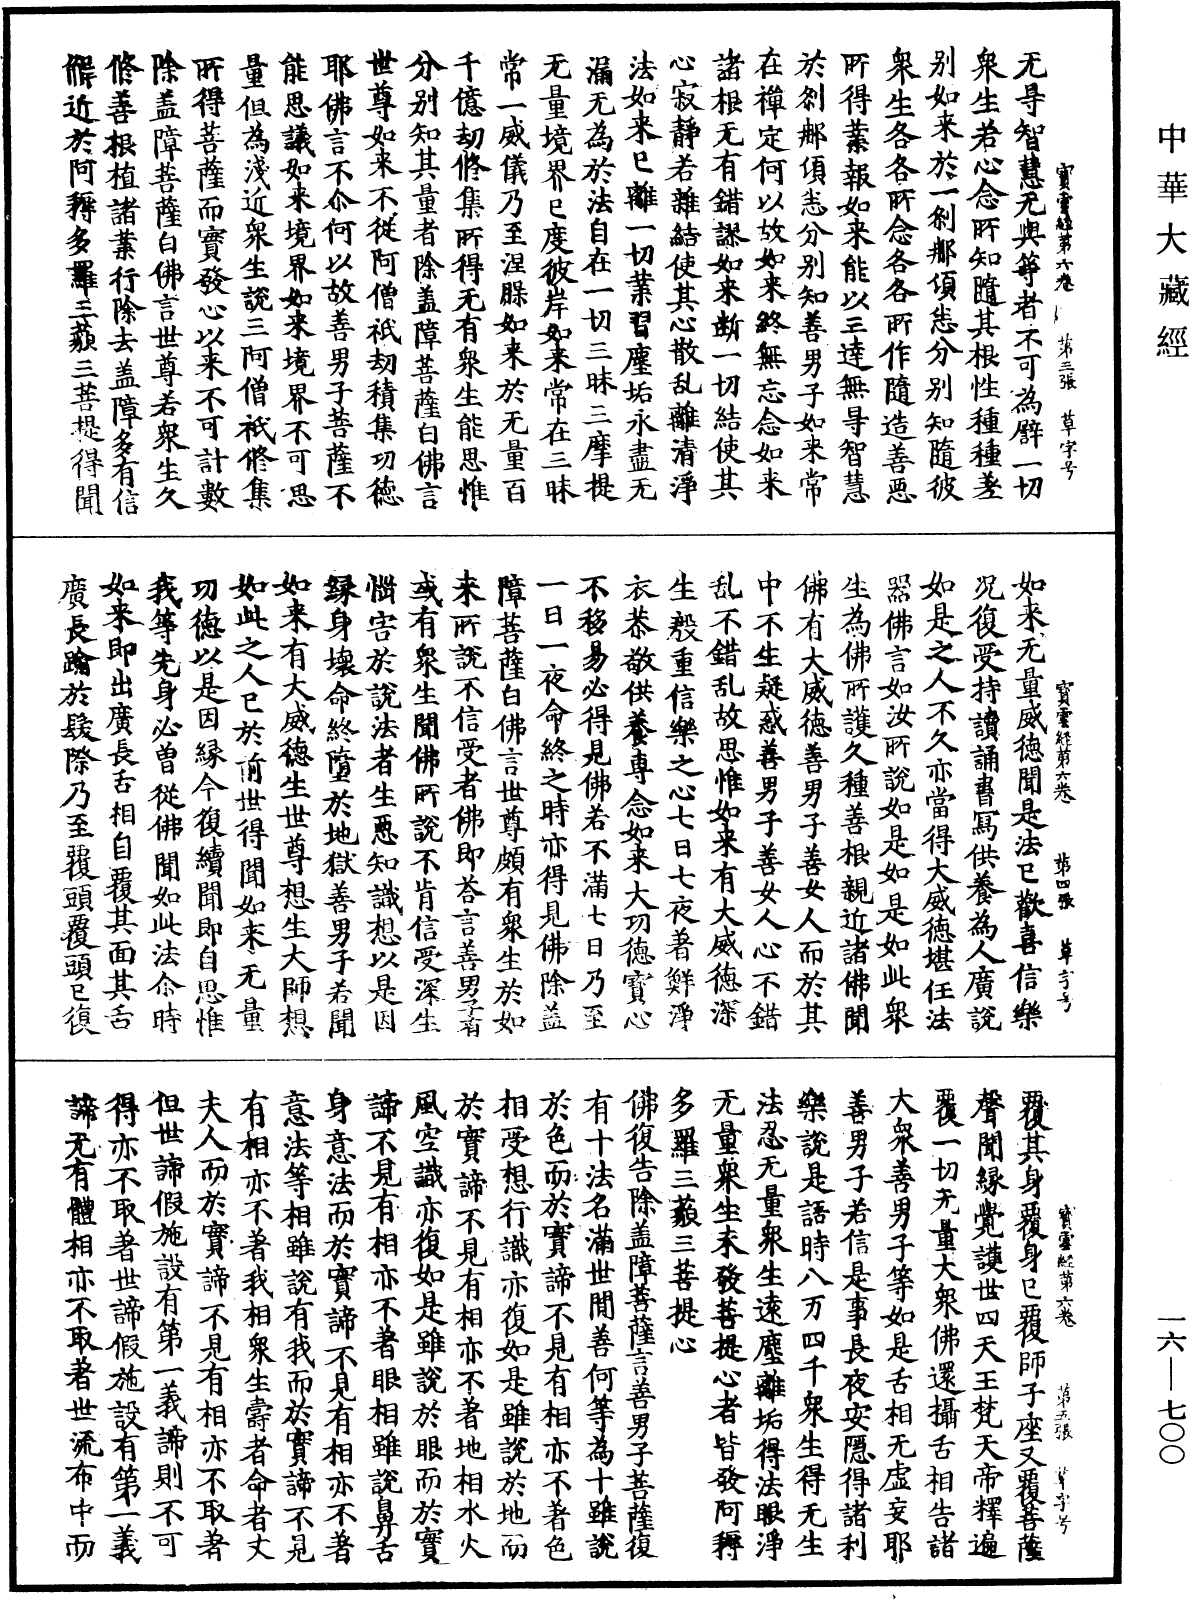 中華大藏經
一六—七〇〇
寶雲經第六卷 第三張 草字号
无㝵智慧无與等者不可為譬一切
衆生若心念所知隨其根性種種差
别如来於一刹那頃悉分别知隨彼
衆生各各所念各各所作隨造善惡
所得業報如来能以三達無㝵智慧
於刹那頃悉分别知善男子如来常
在禪定何以故如来終無忘念如来
諸根无有錯謬如来断一切結使其
心寂靜若雜結使其心散乱離清淨
法如来已離一切業習塵垢永盡无
漏无為於法自在一切三昧三摩提
无量境界已度彼岸如来常在三昧
常一威儀乃至涅脲如来於无量百
千億劫脩集所得无有衆生能思惟
分别知其量者除盖障菩薩白佛言
世尊如来不從阿僧祇劫積集功德
耶佛言不尒何以故善男子菩薩不
能思議如来境界如来境界不可思
量但為淺近衆生說三阿僧祇脩集
所得菩薩而實發心以来不可計數
除盖障菩薩白佛言世尊若衆生久
脩善根植諸業行除去盖障多有信
解近於阿耨多羅三藐三菩提得聞
寶雲經第六卷 第四張 草字号
如来无量威德聞是法已歡喜信樂
况復受持讀誦書寫供養為人廣說
如是之人不久亦當得大威德堪任法
器佛言如汝所說如是如是如此衆
生為佛所護久種善根親近諸佛聞
佛有大威德善男子善女人而於其
中不生疑惑善男子善女人心不錯
乱不錯乱故思惟如来有大威德深
生殷重信樂之心七日七夜著鮮淨
衣恭敬供養專念如来大功德寶心
不移易必得見佛若不滿七日乃至
一日一夜命終之時亦得見佛除盖
障菩薩白佛言世尊頗有衆生於如
来所說不信受者佛即荅言善男子有
或有衆生聞佛所說不肯信受深生
惱害於說法者生惡知識想以是因
緣身壞命終墮於地獄善男子若聞
如来有大威德生世尊想生大師想
如此之人已於前世得聞如来无量
功德以是因緣今復續聞即自思惟
我等先身必曽從佛聞如此法尒時
如来即出廣長舌相自覆其面其舌
廣長踰於髮際乃至覆頭覆頭已復
寶雲經第六卷 第五張 草字号
覆其身覆身已覆師子座又覆菩薩
聲聞緣覺護世四天王梵天帝釋遍
覆一切无量大衆佛還攝舌相告諸
大衆善男子等如是舌相无虛妄耶
善男子若信是事長夜安隱得諸利
樂說是語時八万四千衆生得无生
法忍无量衆生遠塵離垢得法眼淨
无量衆生未發菩提心者皆發阿耨
多羅三藐三菩提心
佛復告除盖障菩薩言善男子菩薩復
有十法名滿世間善何等為十雖說
於色而於實諦不見有相亦不著色
相受想行識亦復如是雖說於地而
於實諦不見有相亦不著地相水火
風空識亦復如是雖說於眼而於實
諦不見有相亦不著眼相雖說鼻舌
身意法而於實諦不見有相亦不著
意法等相雖說有我而於實諦不見
有相亦不著我相衆生壽者命者丈
夫人而於實諦不見有相亦不取著
但世諦假施設有第一義諦則不可
得亦不取著世諦假施設有第一義
諦无有體相亦不取著世流布中而